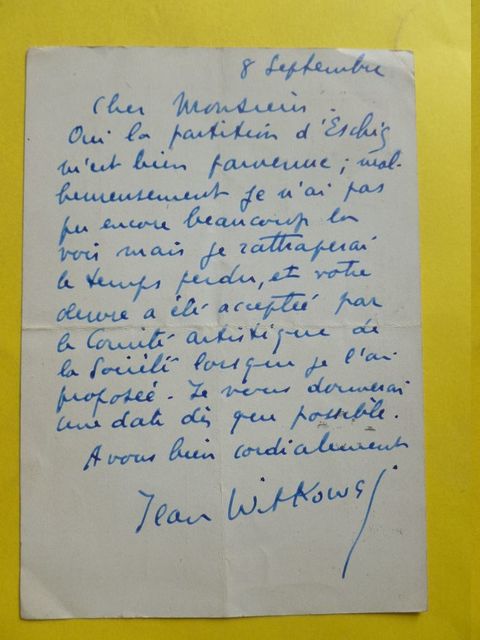 8 Septembre
Cher Monsieur.
Oui la partition d'Eschig
m'est bien parvenue ; mal-
heureusement je n'ai pas
pu encore beaucoup la
voir mais je rattraperai
le temps perdu, et votre
œuvre a été acceptée par
le Comité artistique de
la Société lorsque je l'ai
proposée. Je vous donnerai
une date dès que possible.
A vous bien cordialement
Jean Witkowski